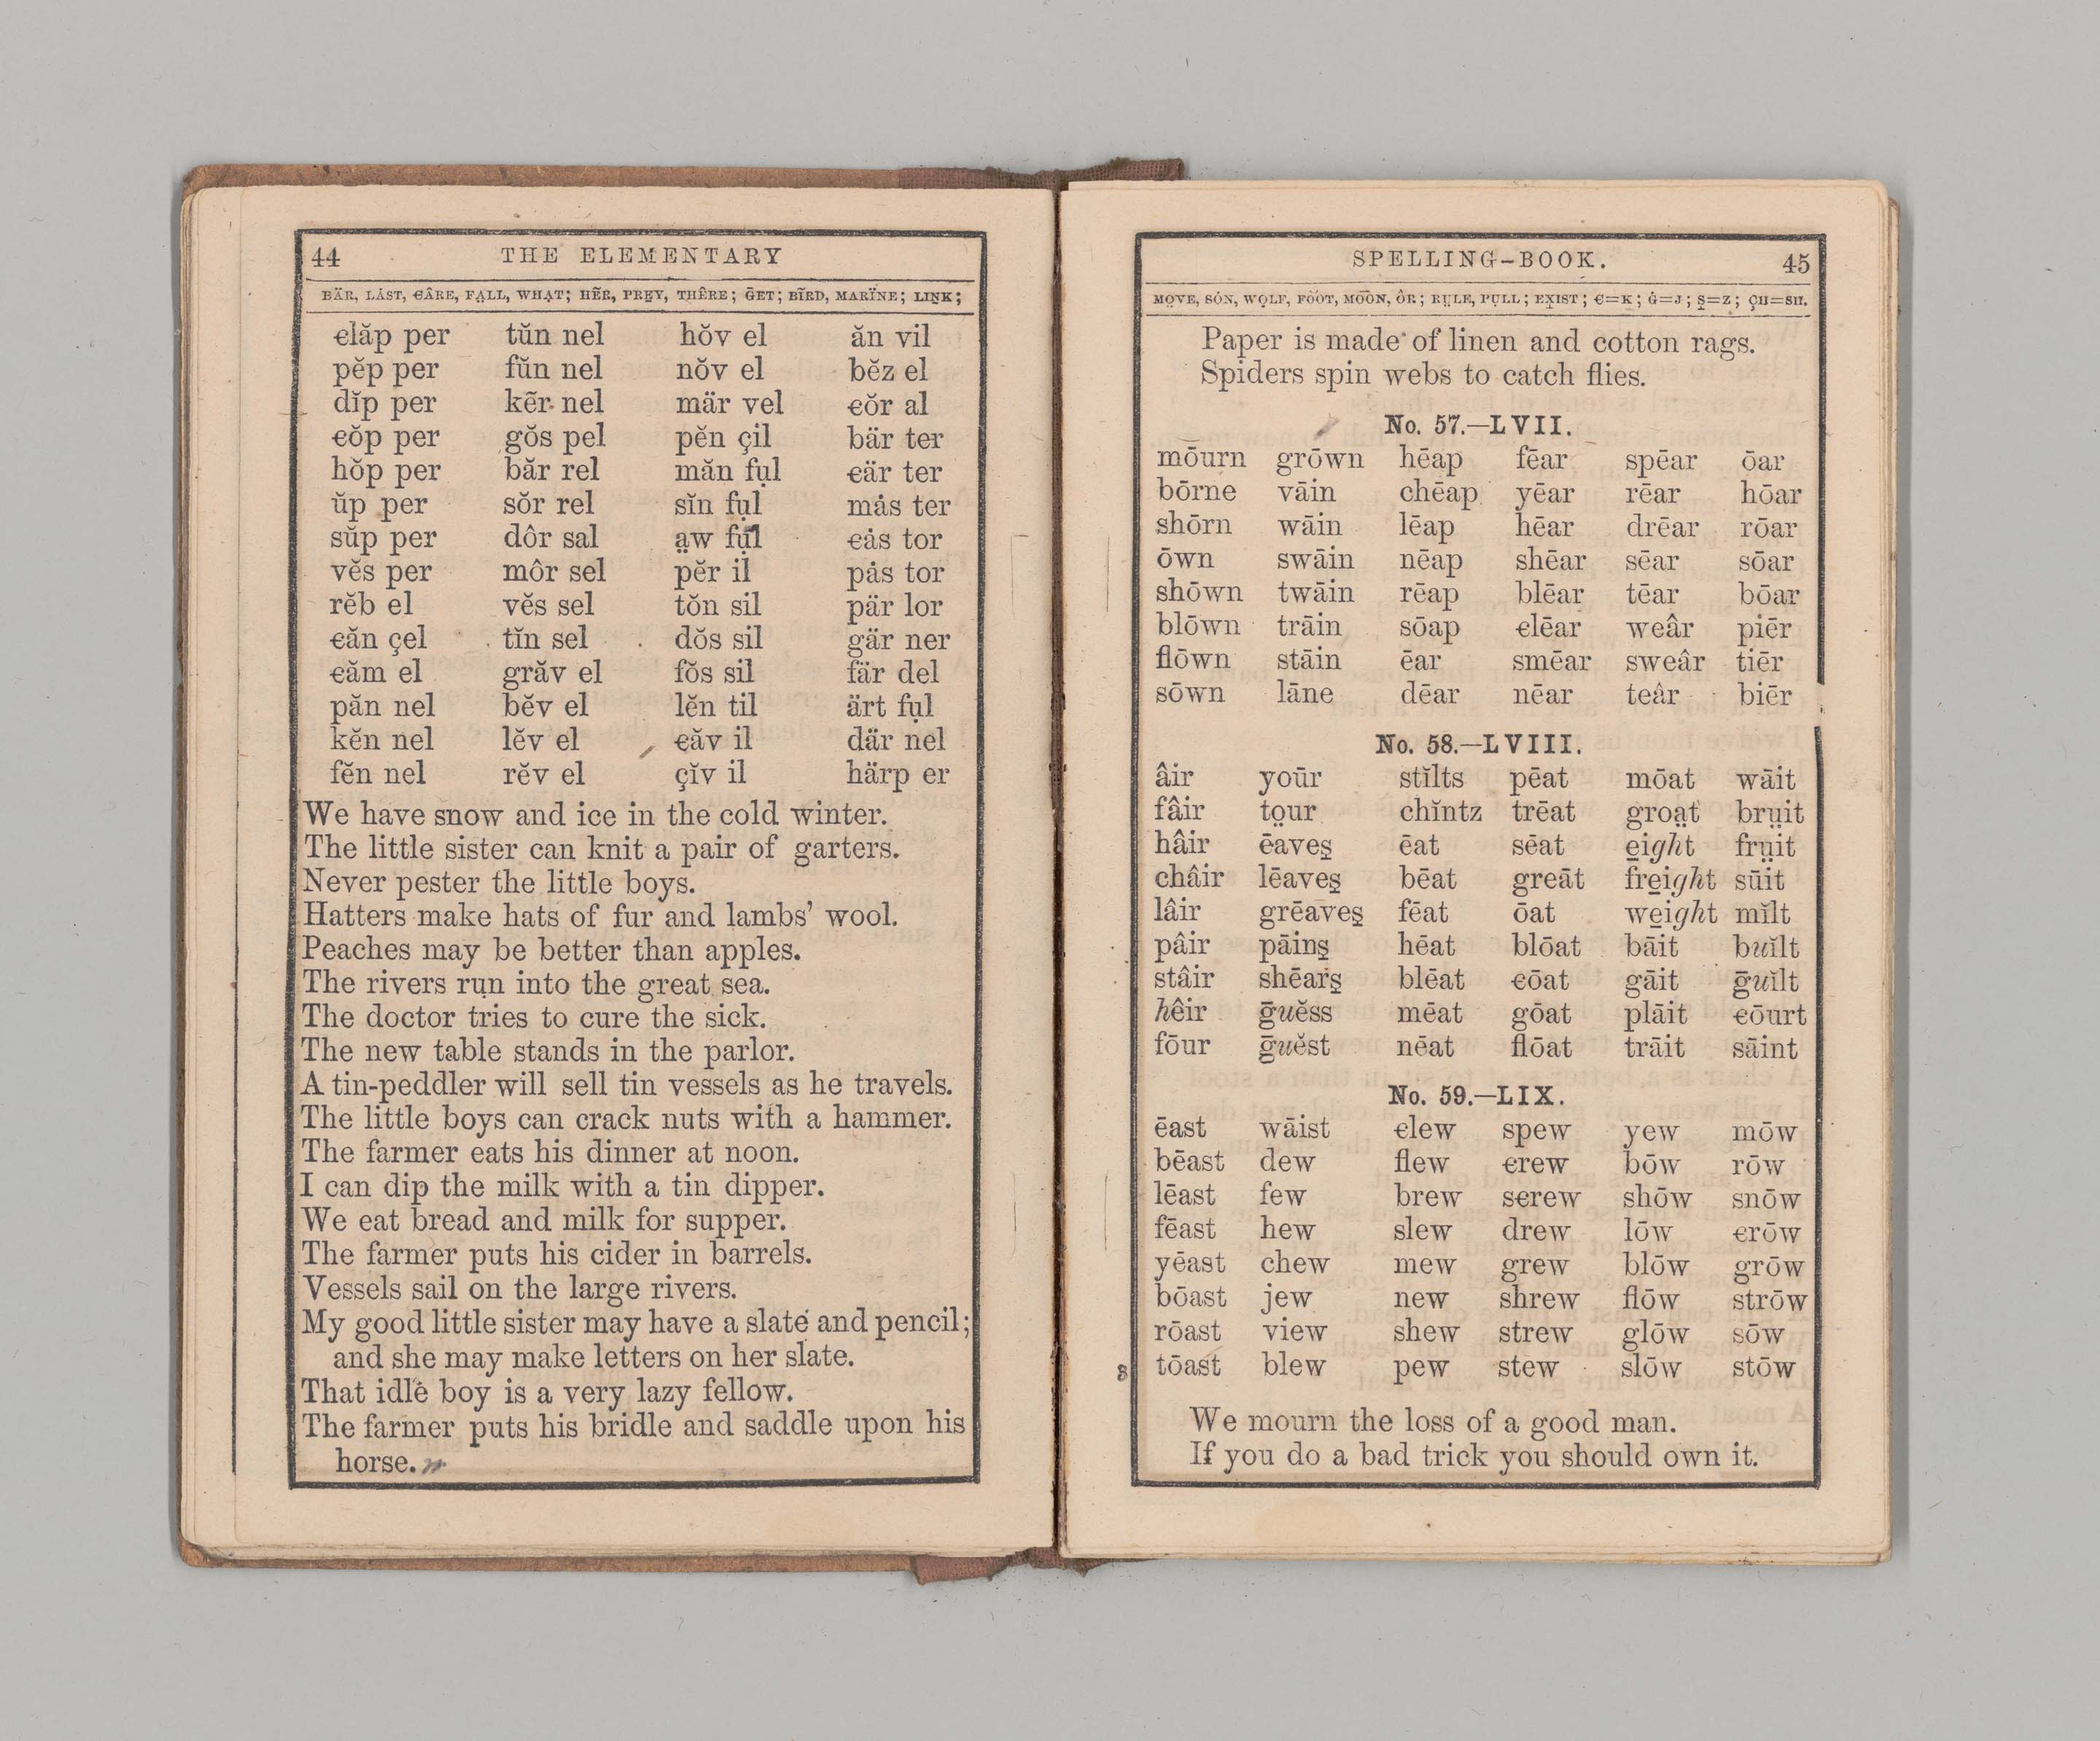 44 THE ELEMENTARY
BÄR, LȦST, ꞒÂRE, FA̤LL, WHA̤T; HẼR, PRE̱Y, THÊRE; ḠET; BĨRD, MARÏNE; LIṈK;
ꞓlăp per tŭn nel hŏv el ăn vil
pĕp per fŭn nel nŏv el bĕz el
dĭp per kẽr nel mär vel ꞓŏr al
ꞓŏp per gŏs pel pĕn çil bär ter
hŏp per băr rel măn fụl ꞓär ter
ŭp per sŏr rel sĭn fụl mȧs ter
sŭp per dôr sal a̤w fụl ꞓȧs tor
vĕs per môr sel pĕr il pȧs tor
rĕb el vĕs sel tŏn sil pär lor
ꞓăn çel tĭn sel dŏs sil gär ner
ꞓăm el grăv el fŏs sil fär del
păn nel bĕv el lĕn til ärt fụl
kĕn nel lĕv el ꞓăv il där nel
fĕn nel rĕv el çĭv il härp er
We have snow and ice in the cold winter.
The little sister can knit a pair of garters.
Never pester the little boys.
Hatters make hats of fur and lambs’ wool.
Peaches may be better than apples.
The rivers run into the great sea.
The doctor tries to cure the sick.
The new table stands in the parlor.
A tin-peddler will sell tin vessels as he travels.
The little boys can crack nuts with a hammer.
The farmer eats his dinner at noon.
I can dip the milk with a tin dipper.
We eat bread and milk for supper.
The farmer puts his cider in barrels.
Vessels sail on the large rivers.
My good little sister may have a slate and pencil;
and she may make letters on her slate.
That idle boy is a very lazy fellow.
The farmer puts his bridle and saddle upon his
horse.
SPELLING-BOOK. 45
MO̤VE, SȮN, WO̤LF, FO͝OT, MO͞ON, ÔR; RṲLE, PỤLL; EX̱IST; Ꞓ=K; Ġ=J; S̱=Z; ÇH=SH.
Paper is made of linen and cotton rags.
Spiders spin webs to catch flies.
No. 57.—LVII.
mōurn grōwn hēap fēar spēar ōar
bōrne vāin chēap yēar rēar hōar
shōrn wāin lēap hēar drēar rōar
ōwn swāin nēap shēar sēar sōar
shōwn twāin rēap blēar tēar bōar
blōwn trāin sōap ꞓlēar weâr piēr
flōwn stāin ēar smēar sweâr tiēr
sōwn lāne dēar nēar teâr biēr
No. 58.—LVIII.
âir yoūr stĭlts pēat mōat wāit
fâir to̤ur chĭntz trēat groa̤t brṳit
hâir ēaves̱ ēat sēat e̱ight frṳit
châir lēaves̱ bēat greāt fre̱ight sūit
lâir grēaves̱ fēat ōat we̱ight mĭlt
pâir pāins̱ hēat blōat bāit buĭlt
stâir shēars̱ blēat ꞓōat gāit ḡuĭlt
hêir ḡuĕss mēat gōat plāit ꞓōurt
fōur ḡuĕst nēat flōat trāit sāint
No. 59.—LIX.
ēast wāist ꞓlew spew yew mōw
bēast dew flew ꞓrew bōw rōw
lēast few brew sꞓrew shōw snōw
fēast hew slew drew lōw ꞓrōw
yēast chew mew grew blōw grōw
bōast jew new shrew flōw strōw
rōast view shew strew glōw sōw
tōast blew pew stew slōw stōw
We mourn the loss of a good man.
If you do a bad trick you should own it.